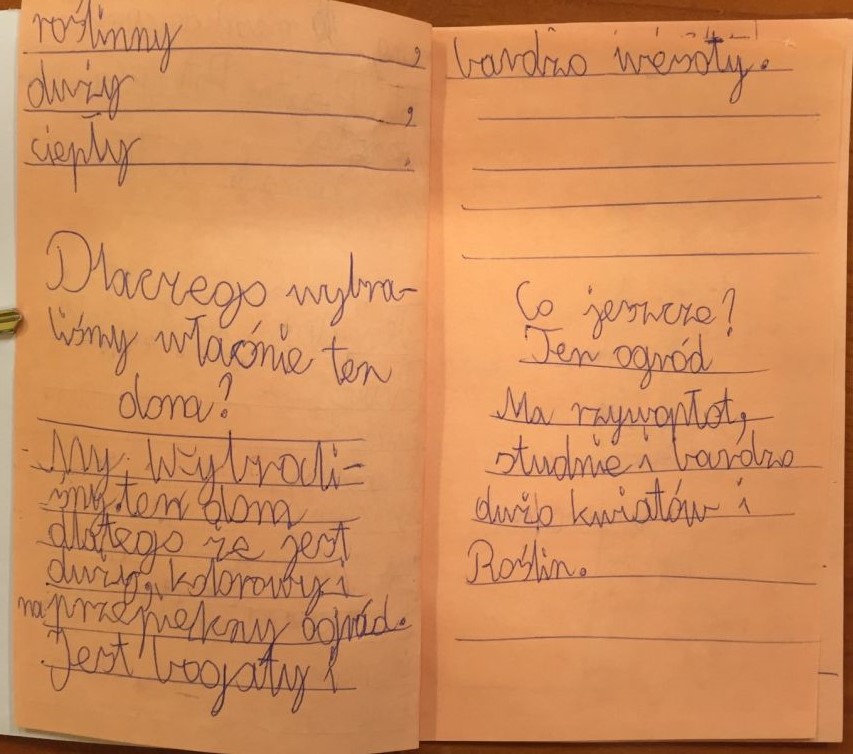 roślinny,
duży,
ciepły.
Dlaczego wybra-
liśmy właśnie ten
dom?
My Wybrali-
śmy ten dom
dlatego że jest
duży, kolorowy i
ma przepiękny ogród.
Jest bogaty i
bardzo wesoły.
Co jeszcze?
Ten ogród
Ma rzywopłot,
studnie i bardzo
dużo kwiatów i
Roślin.